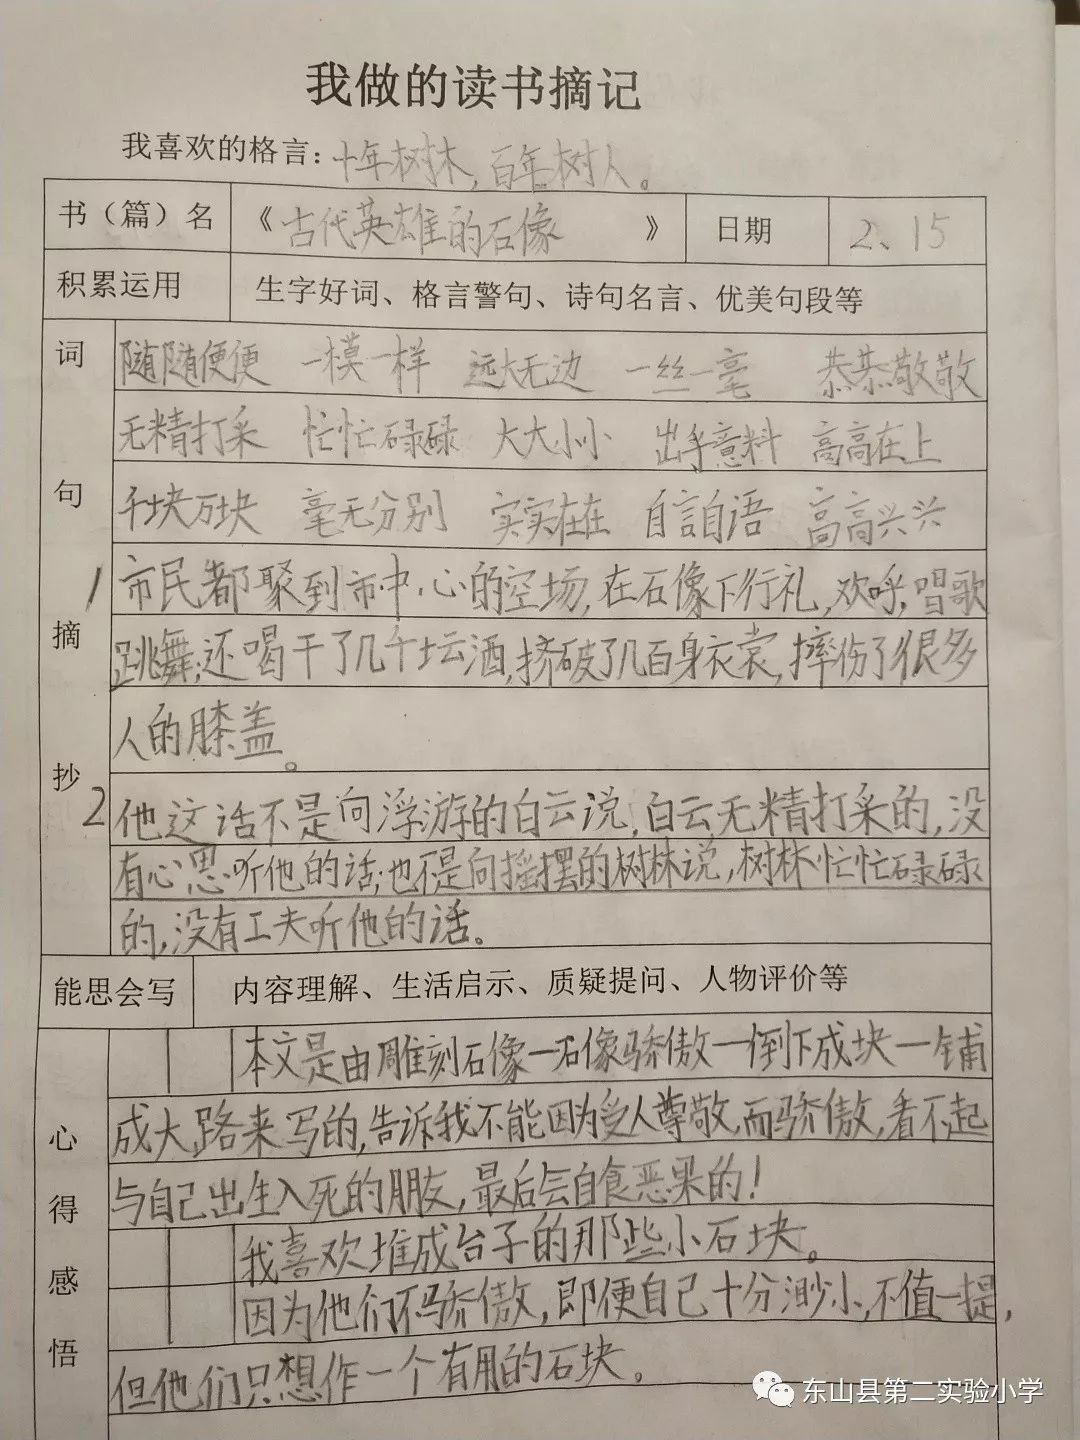 我做的读书摘记
我喜欢的格言：十年树木，百年树人。
书（篇）名 《古代英雄的石像 》 日期 2、15
积累运用 生字好词、格言警句、诗句名言、优美句段等
词句摘抄
随随便便 一模一样 远大无边 一丝一毫 恭恭敬敬
无精打采 忙忙碌碌 大大小小 出乎意料 高高在上
千块万块 毫无分别 实实在在 自言自语 高高兴兴
1 市民都聚到市中心的空场，在石像下行礼，欢呼，唱歌
跳舞；还喝干了几千坛酒，挤破了几百身衣裳，摔伤了很多
人的膝盖。
2 他这话不是向浮游的白云说，白云无精打采的，没
有心思听他的话；也不是向摇摆的树林说，树林忙忙碌碌
的，没有工夫听他的话。
能思会写 内容理解、生活启示、质疑提问、人物评价等
心得感悟
本文是由雕刻石像一石像骄傲一倒下成块一铺
成大路来写的，告诉我不能因为受人尊敬，而骄傲，看不起
与自己出生入死的朋友，最后会自食恶果的！
我喜欢堆成台子的那些小石块。
因为他们不骄傲，即便自己十分渺小，不值一提，
但他们只想作一个有用的石块。
东山县第二实验小学